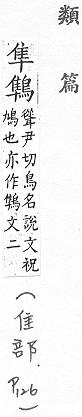 類篇
隼鶽
聳尹切鳥名說文祝
鳩也亦作鶽文二
(隹部. P126)